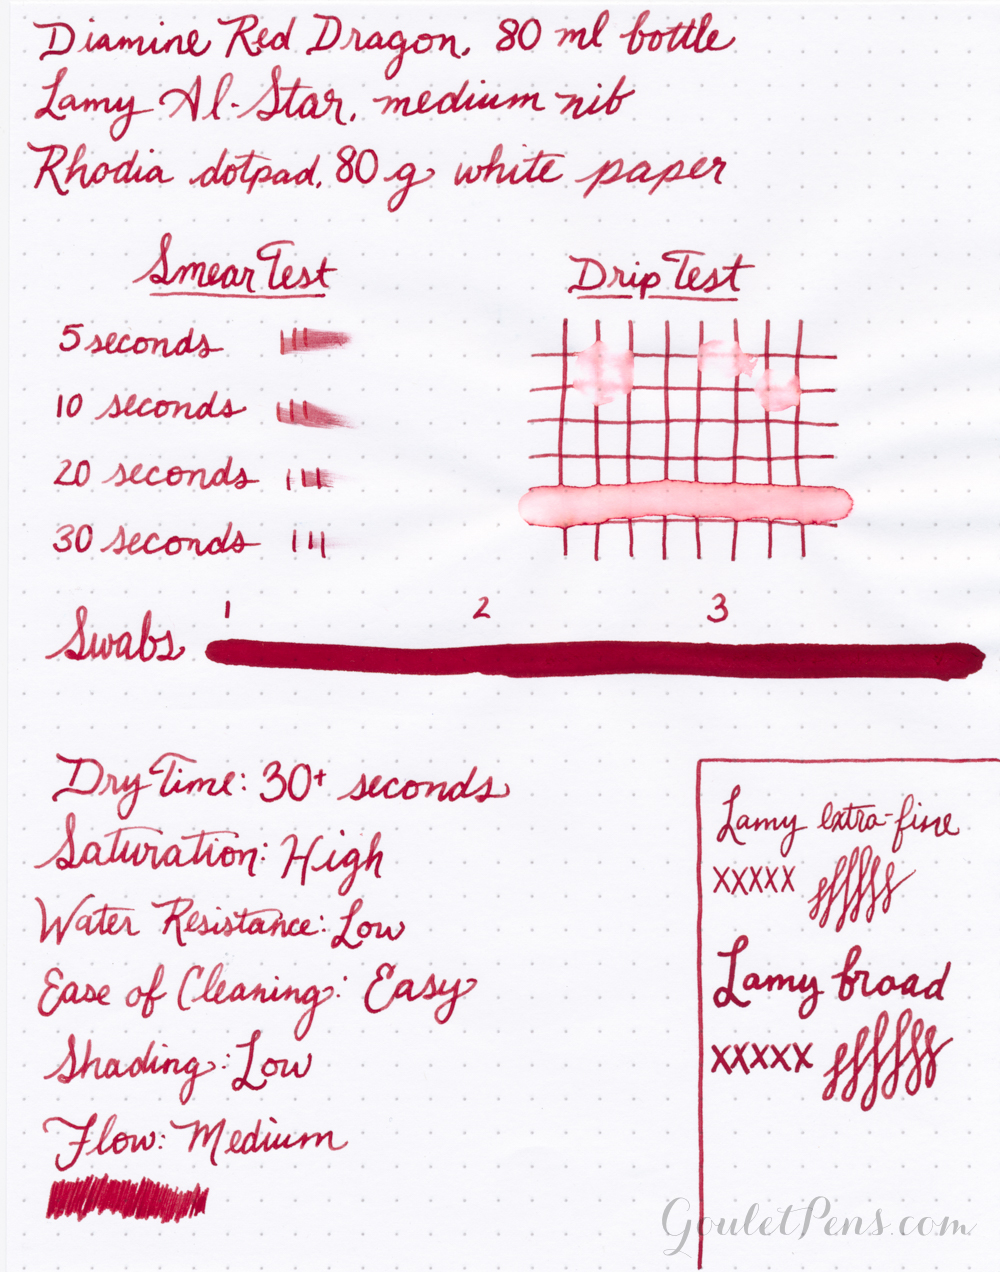 Diamine Red Dragon, 80 ml bottle
Lamy Al-Star, medium nib
Rhodia dotpad, 80 g white paper
Smear Test
5 seconds
10 seconds
20 seconds
30 seconds
Drip Test
1 2 3
Swabs
Dry Time: 30+ seconds
Saturation: High
Water Resistance: Low
Ease of Cleaning: Easy
Shading: Low
Flow: Medium
Lamy extra-fine
XXXXX
Lamy broad
XXXXX
GouletPens.com